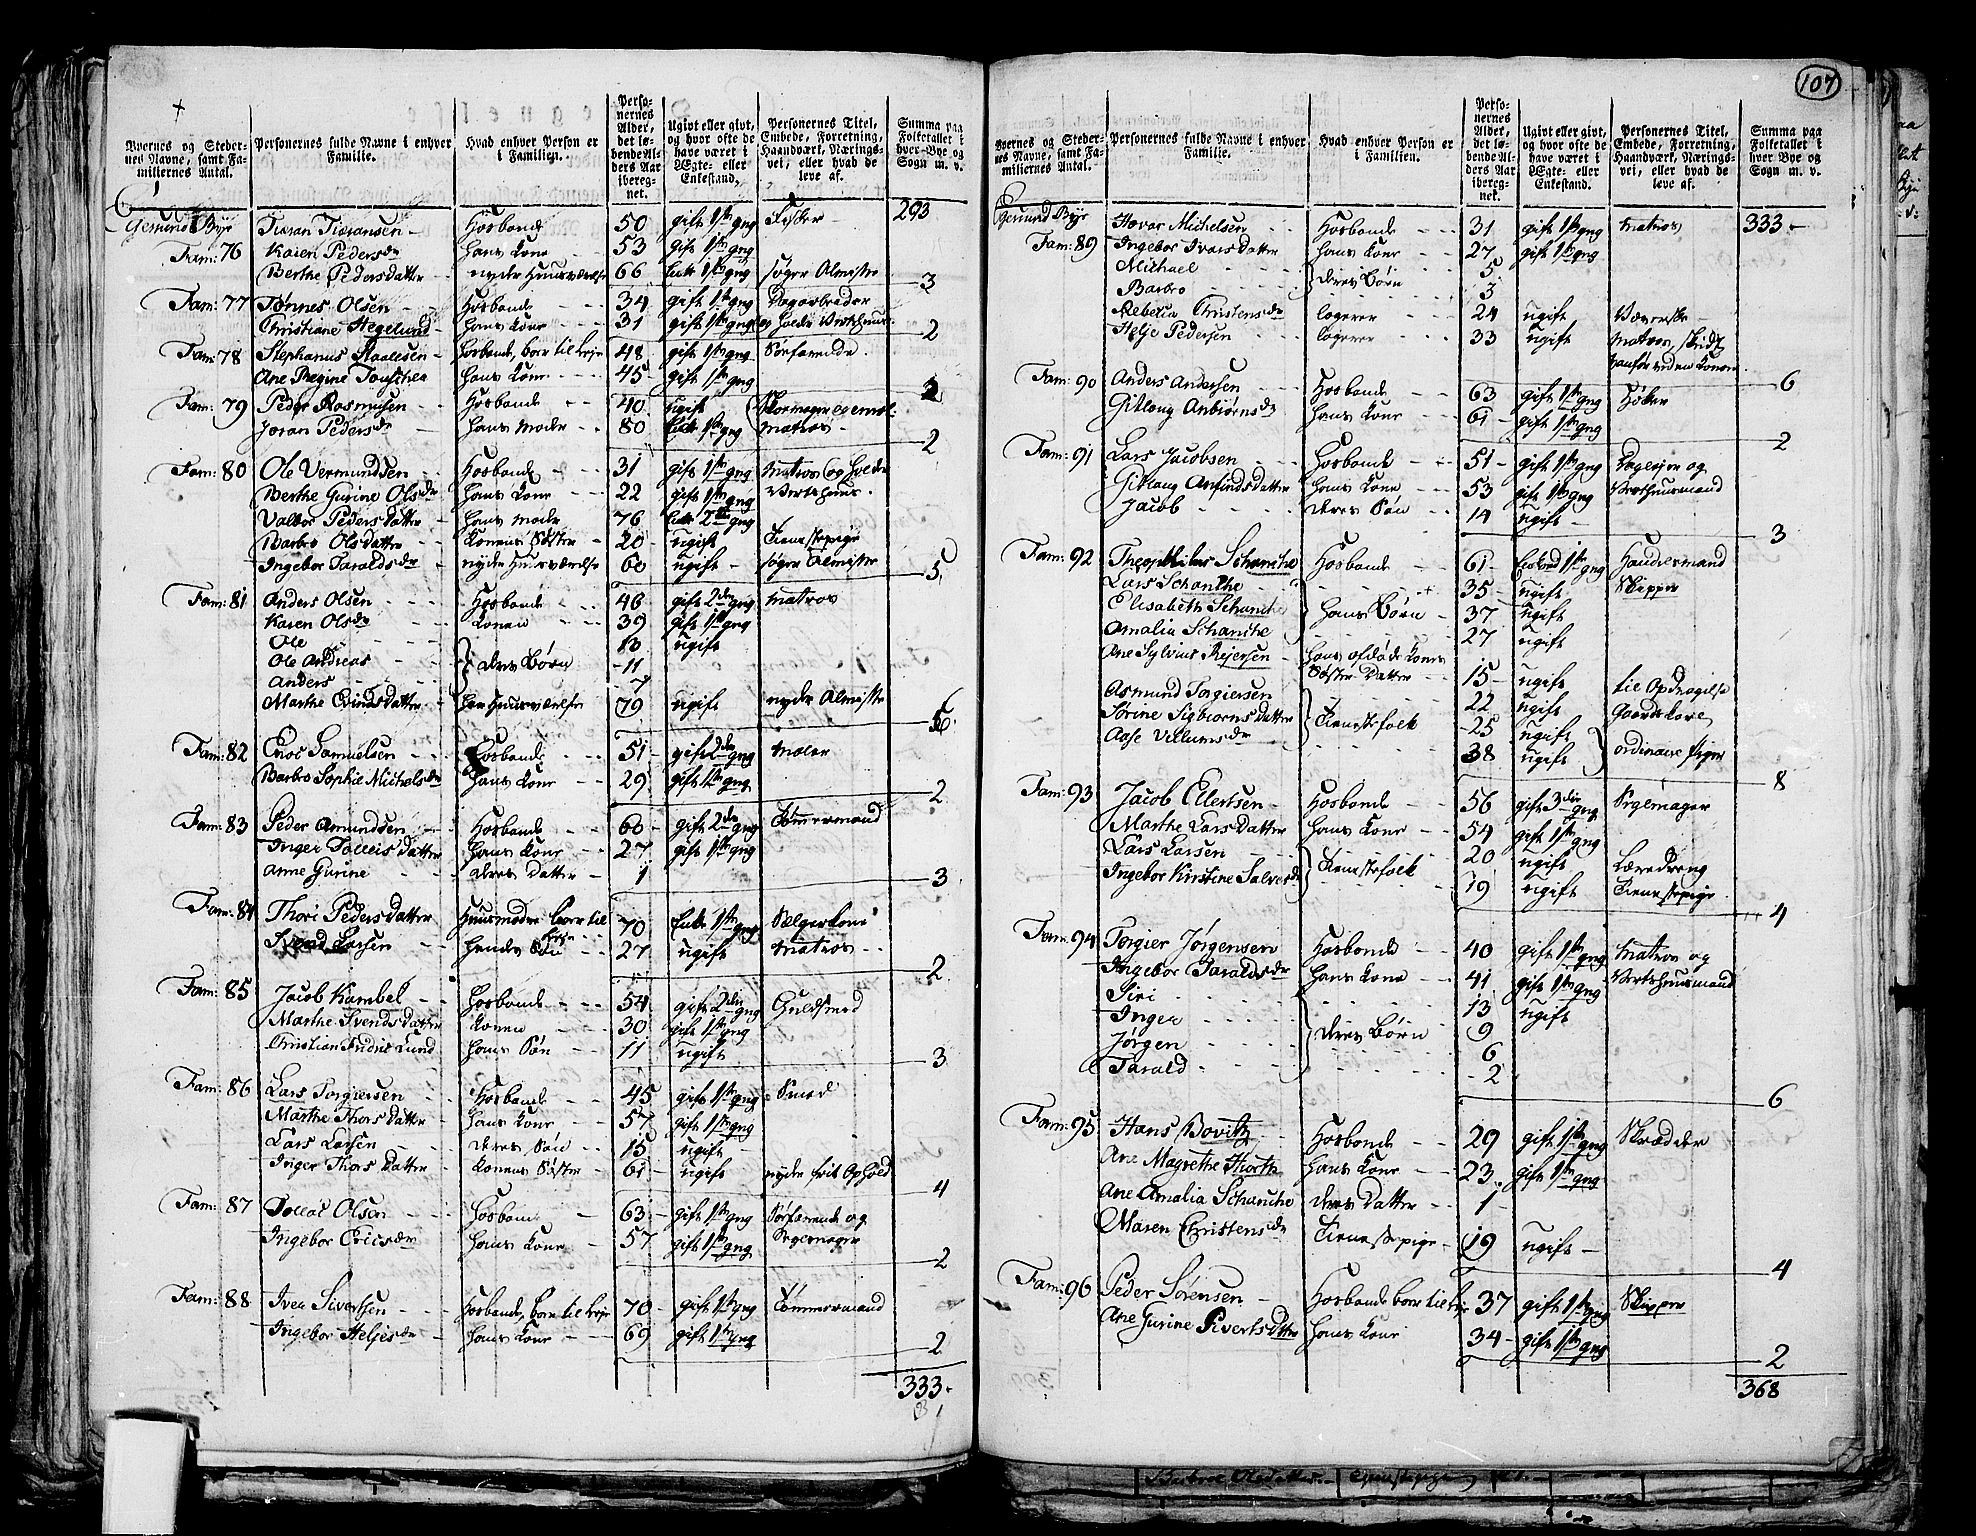 107
Byernes og Steder-nes Navne, samt Fa-miliernes Antal. Personernes fulde Navne i enhver Familie. Hvad enhver Person er i Familien. Perso-nernes Alder, det lø-bende Al-ders Aar iberegnet. Ugivt eller givt, og hvor ofte de have været i Ægte- eller Enkestand. Personernes Titel, Embede, Forretning, Haandværk, Nærings-vei, eller hvad de leve af. Summa paa Folketallet i hver Bye og Sogn m. v.
293
50 gift 1ste gng Fisker
Fam: 76 Karen Pedersdr hans Kone 53 gift 1ste gng
Berthe Pedersdatter nyder Huusværelse 66 Enke 1ste gng søger Almisse
3
Fam: 77 Tønnes Olsen Hosbonde 34 gift 1ste gng Dagarbeider
Christiane Hegelund hans Kone 31 gift 1ste gng
2
Fam: 78 Stephanus Staalesen Hosbonde, boer til Leje 48 gift 1ste gng Søfarende
45 gift 1ste gng
2
Fam: 79 Peder Rasmusen Hosbonde 40 ugift
Joran Pedersdr hans Moder 80 Enke 1ste gng Matros
2
Fam: 80 Ole Vermundsen Hosbonde 31 gift 1ste gng Matros og holder
Berthe Gurine Olsdr hans Kone 22 gift 1ste gng Vertshuus
Valbor Pedersdatter hans Moder 76 Enke 2den gng
Barbro Olsdatter Konens Søster 20 ugift Tienestepige
Ingebor Taraldsdr nyder Huusværelse 60 ugift søger Almisse
5
Fam: 81 Anders Olsen Hosbonde 46 gift 2den gng Matros
Karen Olsdr Konen 39 gift 1ste gng
Ole 13 ugift
Ole Andreas deres Børn 11
Anders 7
Marthe Evindsdatter har Huusværelse 79 ugift nyder Almisse
6
Fam: 82 Enoc Samuelsen Hosbonde 51 gift 2den gng Maler
Barbro Sophie Michelsdr hans Kone 29 gift 1ste gng
2
Fam: 83 Peder Amundsen Hosbonde 60 gift 2den gng Tømmermand
Inger Tolleisdatter hans Kone 27 gift 1ste gng
Anne Gurine deres Datter 1
3
Fam: 84 Thori Pedersdatter Huusmoder boer til Leje 70 Enke 1ste gng Sælgerkone
Svend Larsen hendes Søn 27 ugift Matros
2
Fam: 85 Jacob Kambel Hosbonde 54 gift 2den gng Guldsmed
Marthe Svendsdatter Konen 30 gift 1ste gng
Christian Fridric Lund hans Søn 11 ugift
3
Fam: 86 Lars Torgiersen Hosbonde 45 gift 1ste gng Smed
Marthe Thorsdatter hans Kone 57 gift 1ste gng
Lars Larsen deres Søn 15 ugift
Inger Thorsdatter Konens Søster 61 ugift nyder frit Ophold
4
Fam: 87 Olsen Hosbonde 63 gift 1ste gng Søfarende og
Ingebor Ericsdr hans Kone 57 gift 1ste gng Segelmager
2
Fam: 88 Iver Sivertsen Hosbonde, boer til Leje 70 gift 1ste gng Tømmermand
Ingebor Heljesdr hans Kone 69 gift 1ste gng
2
333
Byernes og Steder-nes Navne, samt Fa-miliernes Antal. Personernes fulde Navne i enhver Familie. Hvad enhver Person er i Familien. Perso-nernes Alder, det lø-bende Al-ders Aar iberegnet. Ugivt eller givt, og hvor ofte de have været i Ægte- eller Enkestand. Personernes Titel, Embede, Forretning, Haandværk, Nærings-vei, eller hvad de leve af. Summa paa Folketallet i hver Bye og Sogn m. v.
Havor Michelsen Hosbonde 31 gift 1ste gng Matros 333
Fam: 89 Ingebor Ivarsdatter hans Kone 27 gift 1ste gng
Michael deres Børn 5
Barbro 3
Rebecca Christensdr logerer 24 ugift Væverske
Helje Pedersen logerer 33 ugift Matros
6
Fam: 90 Anders Andersen Hosbonde 63 gift 1ste gng Høker
Gitlaug Anbiørnsdr hans Kone 61 gift 1ste gng
2
Fam: 91 Lars Jacobsen Hosbonde 51 gift 1ste gng og
Gitlaug Amundsdatter hans Kone 53 gift 1ste gng Vertshuusmand
Jacob deres Søn 14 ugift
3
Fam: 92 Theophilus Schanche Hosbonde 61 1ste gng Handelsmand
Lars Schanche 35 ugift Skipper
Elisabeth Schanche hans Børn 37 ugift
Amalia Schanche 27 ugift
Ane Sylvius Rejersen hans afdøde Kones
Søster Datter 15 ugift til Opdragelse
Asmund Torgiersen 22 ugift Gaardskarl
Sørine Sigbiørnsdatter Tienestefolk 25 ugift
Aase Villumsdr 38 ugift ordinaire piger
8
Fam: 93 Jacob Ellertsen Hosbonde 56 gift 3die gng Segelmager
Marthe Larsdatter hans Kone 54 gift 1ste gng
Lars Larsen Tienestefolk 20 ugift Læredreng
Ingebor Kirstine Salvesdr 19 ugift Tienestepige
4
Fam: 94 Torgier Jørgensen Hosbonde 40 gift 1ste gng Matros og
Ingebor Taraldsdr hans Kone 41 gift 1ste gng Vertshuusmand
Siri 13 ugift
Inger deres Børn 9
Jørgen 6
Tarald 2
6
Fam: 95 Hans Bovitz Hosbonde 29 gift 1ste gng Skrædder
Ane Magrethe hans Kone 23 gift 1ste gng
Ane Amalia Schanche deres Datter 1
Maren Christensdr Tienestepige 19 ugift
4
Fam: 96 Peder Sørensen Hosbonde boer til Leje 37 gift 1ste gng Skipper
Ane Gurine Sivertsdatter hans Kone 34 gift 1ste gng
2
368